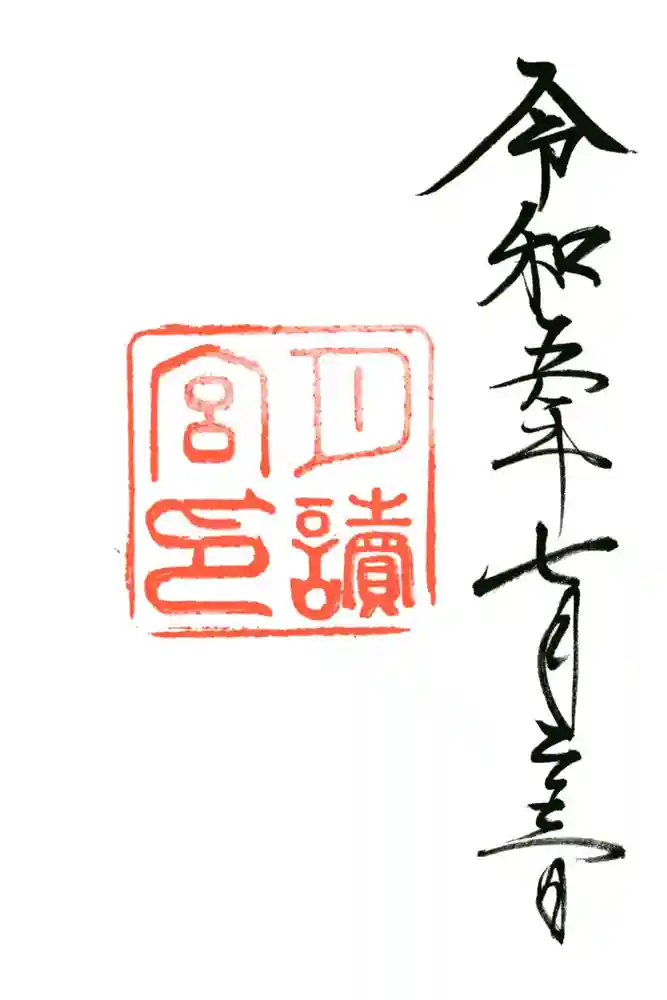 令和五年七月二十三日
月讀
宮印